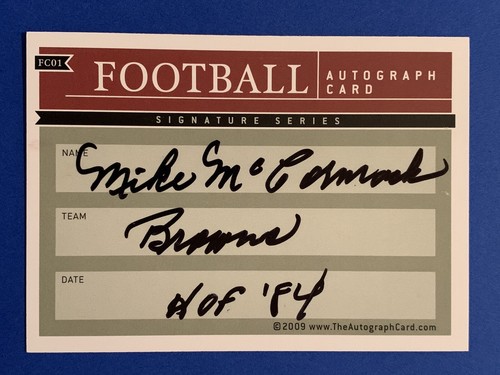 FC01
FOOTBALL
AUTOGRAPH
CARD
SIGNATURE SERIES
NAME
Mike McCormack
TEAM
Browns
DATE
HOF '84
©2009 www.TheAutographCard.com